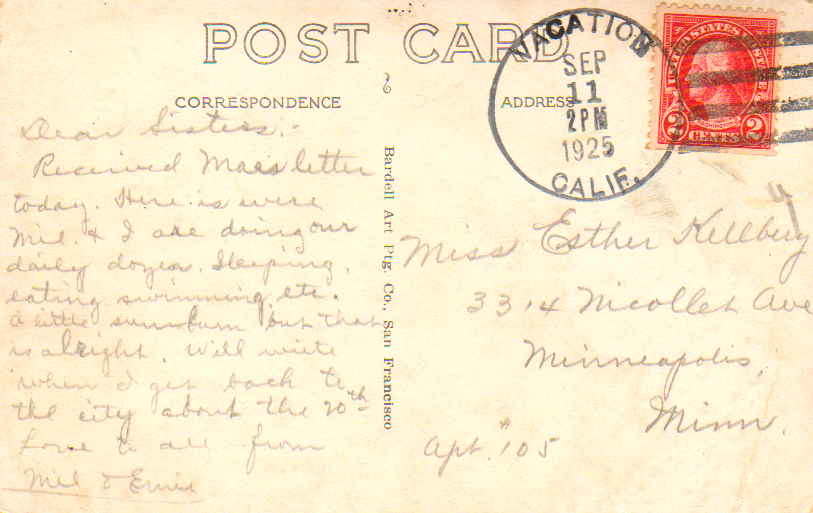 POST CARD
CORRESPONDENCE
ADDRESS
VACATION
SEP
11
2PM
1925
CALIF.
UNITED STATES POSTAGE
2 CENTS 2
Dear Sisters:-
Received Maes letter
today. Here is were
Mil. & I are doing our
daily dozen. Sleeping,
eating swimming, etc.
a little sunburn but that
is alright. Will write
when I get back to
the city about the 20th
Love to all from
Mil & Ernie
Bardell Art Ptg. Co., San Francisco
Miss Esther Kellberg
3314 Nicollet Ave
Minneapolis,
Minn.
Apt. #105